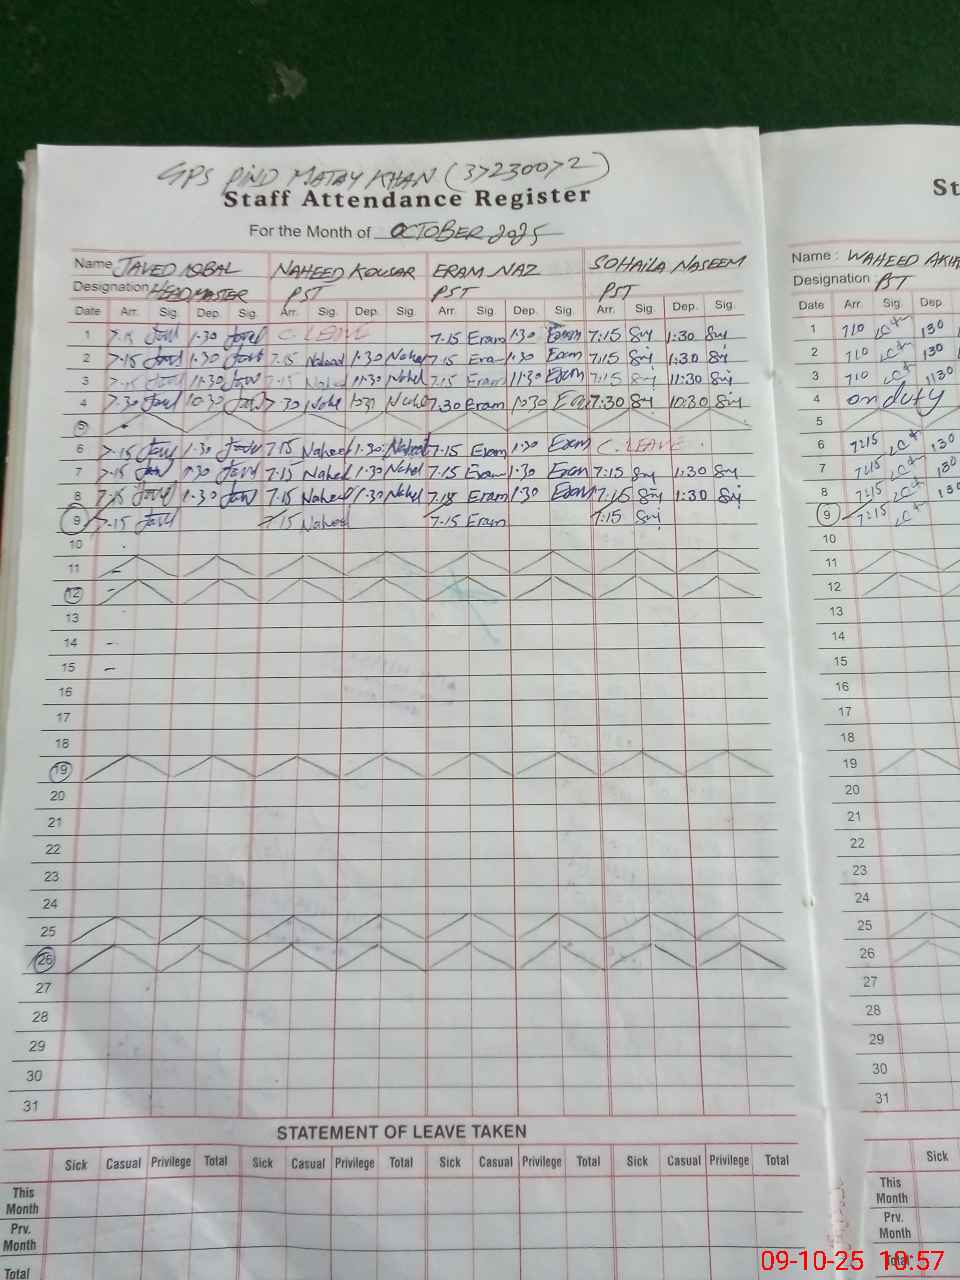 GPS PIND MATAY KHAN (37230072)
Staff Attendance Register
For the Month of OCTOBER 2025
Name JAVED IQBAL NAHEED KOUSAR ERAM NAZ SOHAILA NASEEM
Designation HEADMASTER PST PST PST
Date Arr. Sig. Dep. Sig. Arr. Sig. Dep. Sig. Arr. Sig. Dep. Sig. Arr. Sig. Dep. Sig.
1 7-15 Javed 1-30 Javed C. LEAVE 7-15 Eram 1-30 Eram 7:15 1:30
2 7-15 Javed 1-30 Javed 7-15 Naheed 1-30 Naheed 7-15 Eram 1-30 Eram 7:15 1:30
3 7-15 Javed 11-30 Javed 7-15 Naheed 11-30 Naheed 7-15 Eram 11-30 Eram 7:15 11:30
4 7-30 Javed 10-30 Javed 7-30 10-30 7.30 Eram 10-30 7:30 10:30
5
6 7-15 Javed 1-30 Javed 7-15 Naheed 1-30 Naheed 7-15 Eram 1-30 Eram C. LEAVE.
7 7-15 Javed 1-30 Javed 7-15 Naheed 1-30 Naheed 7-15 Eram 1-30 Eram 7:15 1:30
8 7-15 Javed 1-30 Javed 7-15 Naheed 1-30 Naheed 7-15 Eram 1-30 Eram 7:15 1:30
9 7-15 Javed 7-15 Naheed 7-15 Eram 7:15
10
11
12
13
14
15
16
17
18
19
20
21
22
23
24
25
26
27
28
29
30
31
STATEMENT OF LEAVE TAKEN
Sick Casual Privilege Total Sick Casual Privilege Total Sick Casual Privilege Total Sick Casual Privilege Total
This Month
Prv. Month
Total
St
Name : WAHEED
Designation
Date Arr. Sig. Dep.
1 710 130
2 710 130
3 710 1130
4 on duty
5
6 7:15 130
7 7:15 130
8 7:15 130
9 7:15
10
11
12
13
14
15
16
17
18
19
20
21
22
23
24
25
26
27
28
29
30
31
Sick
This Month
Prv. Month
Total
09-10-25 10:57